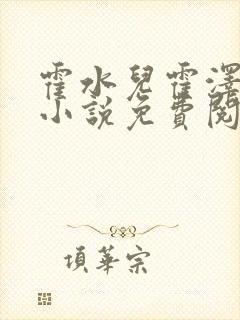 霍水兒霍澤
小說免費閱
項華宗